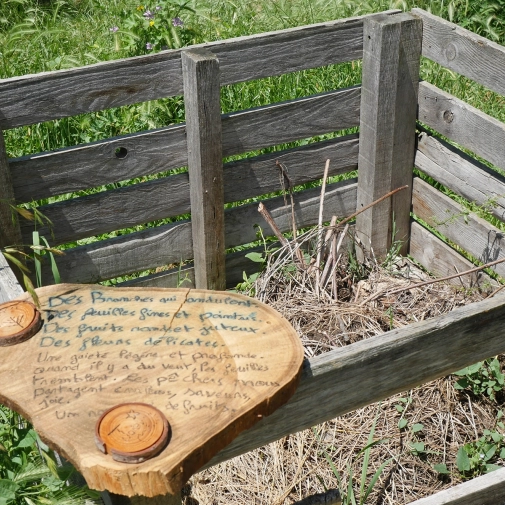 Des Branches qui ondulent
Des feuilles fines et pointues
Des fruits nombreux juteux
Des fleurs délicates.
Une gaieté légère et profonde.
quand il y a du vent, les feuilles
tremblent. Les pêches nous
partagent douceurs, saveurs,
joie.
Un de fruits.